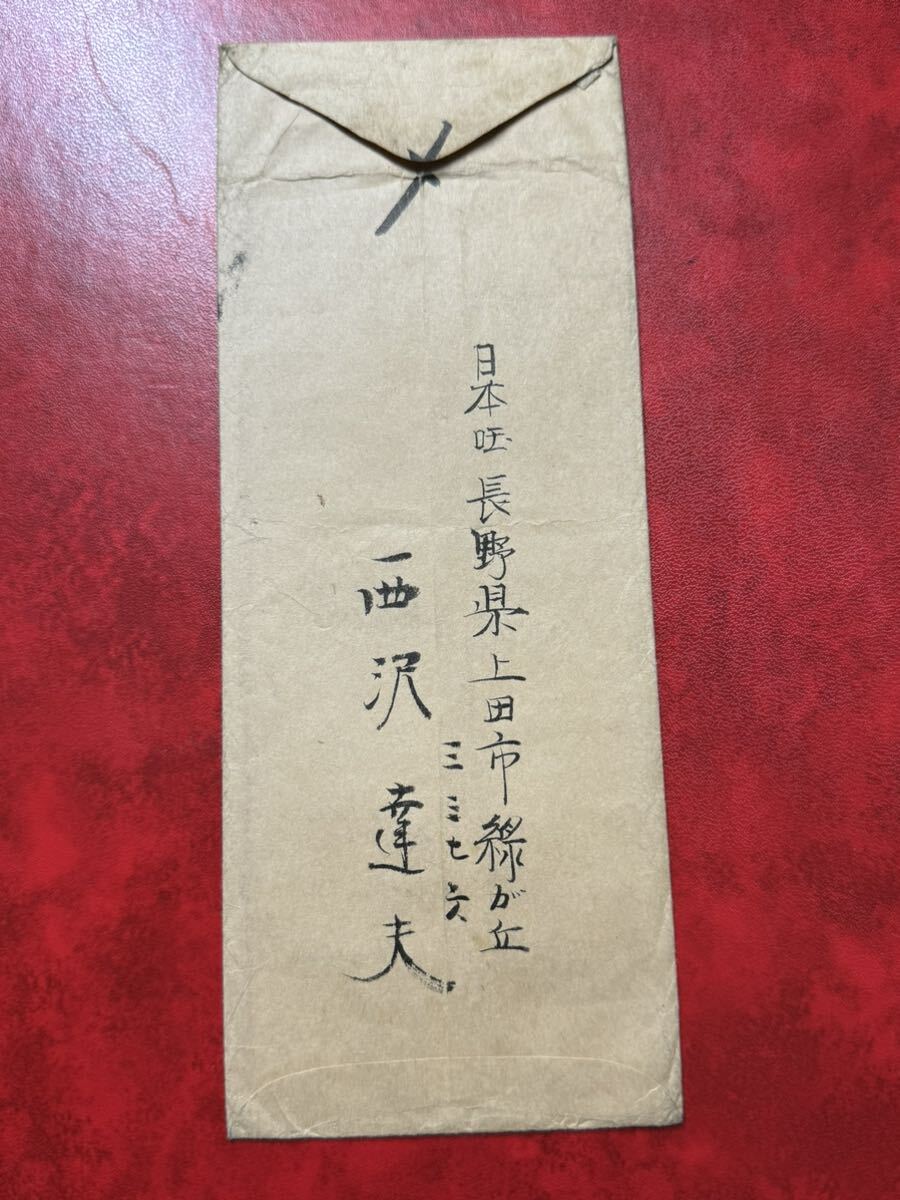 〆
日本国長野県上田市緑が丘
三三七六
西沢達夫